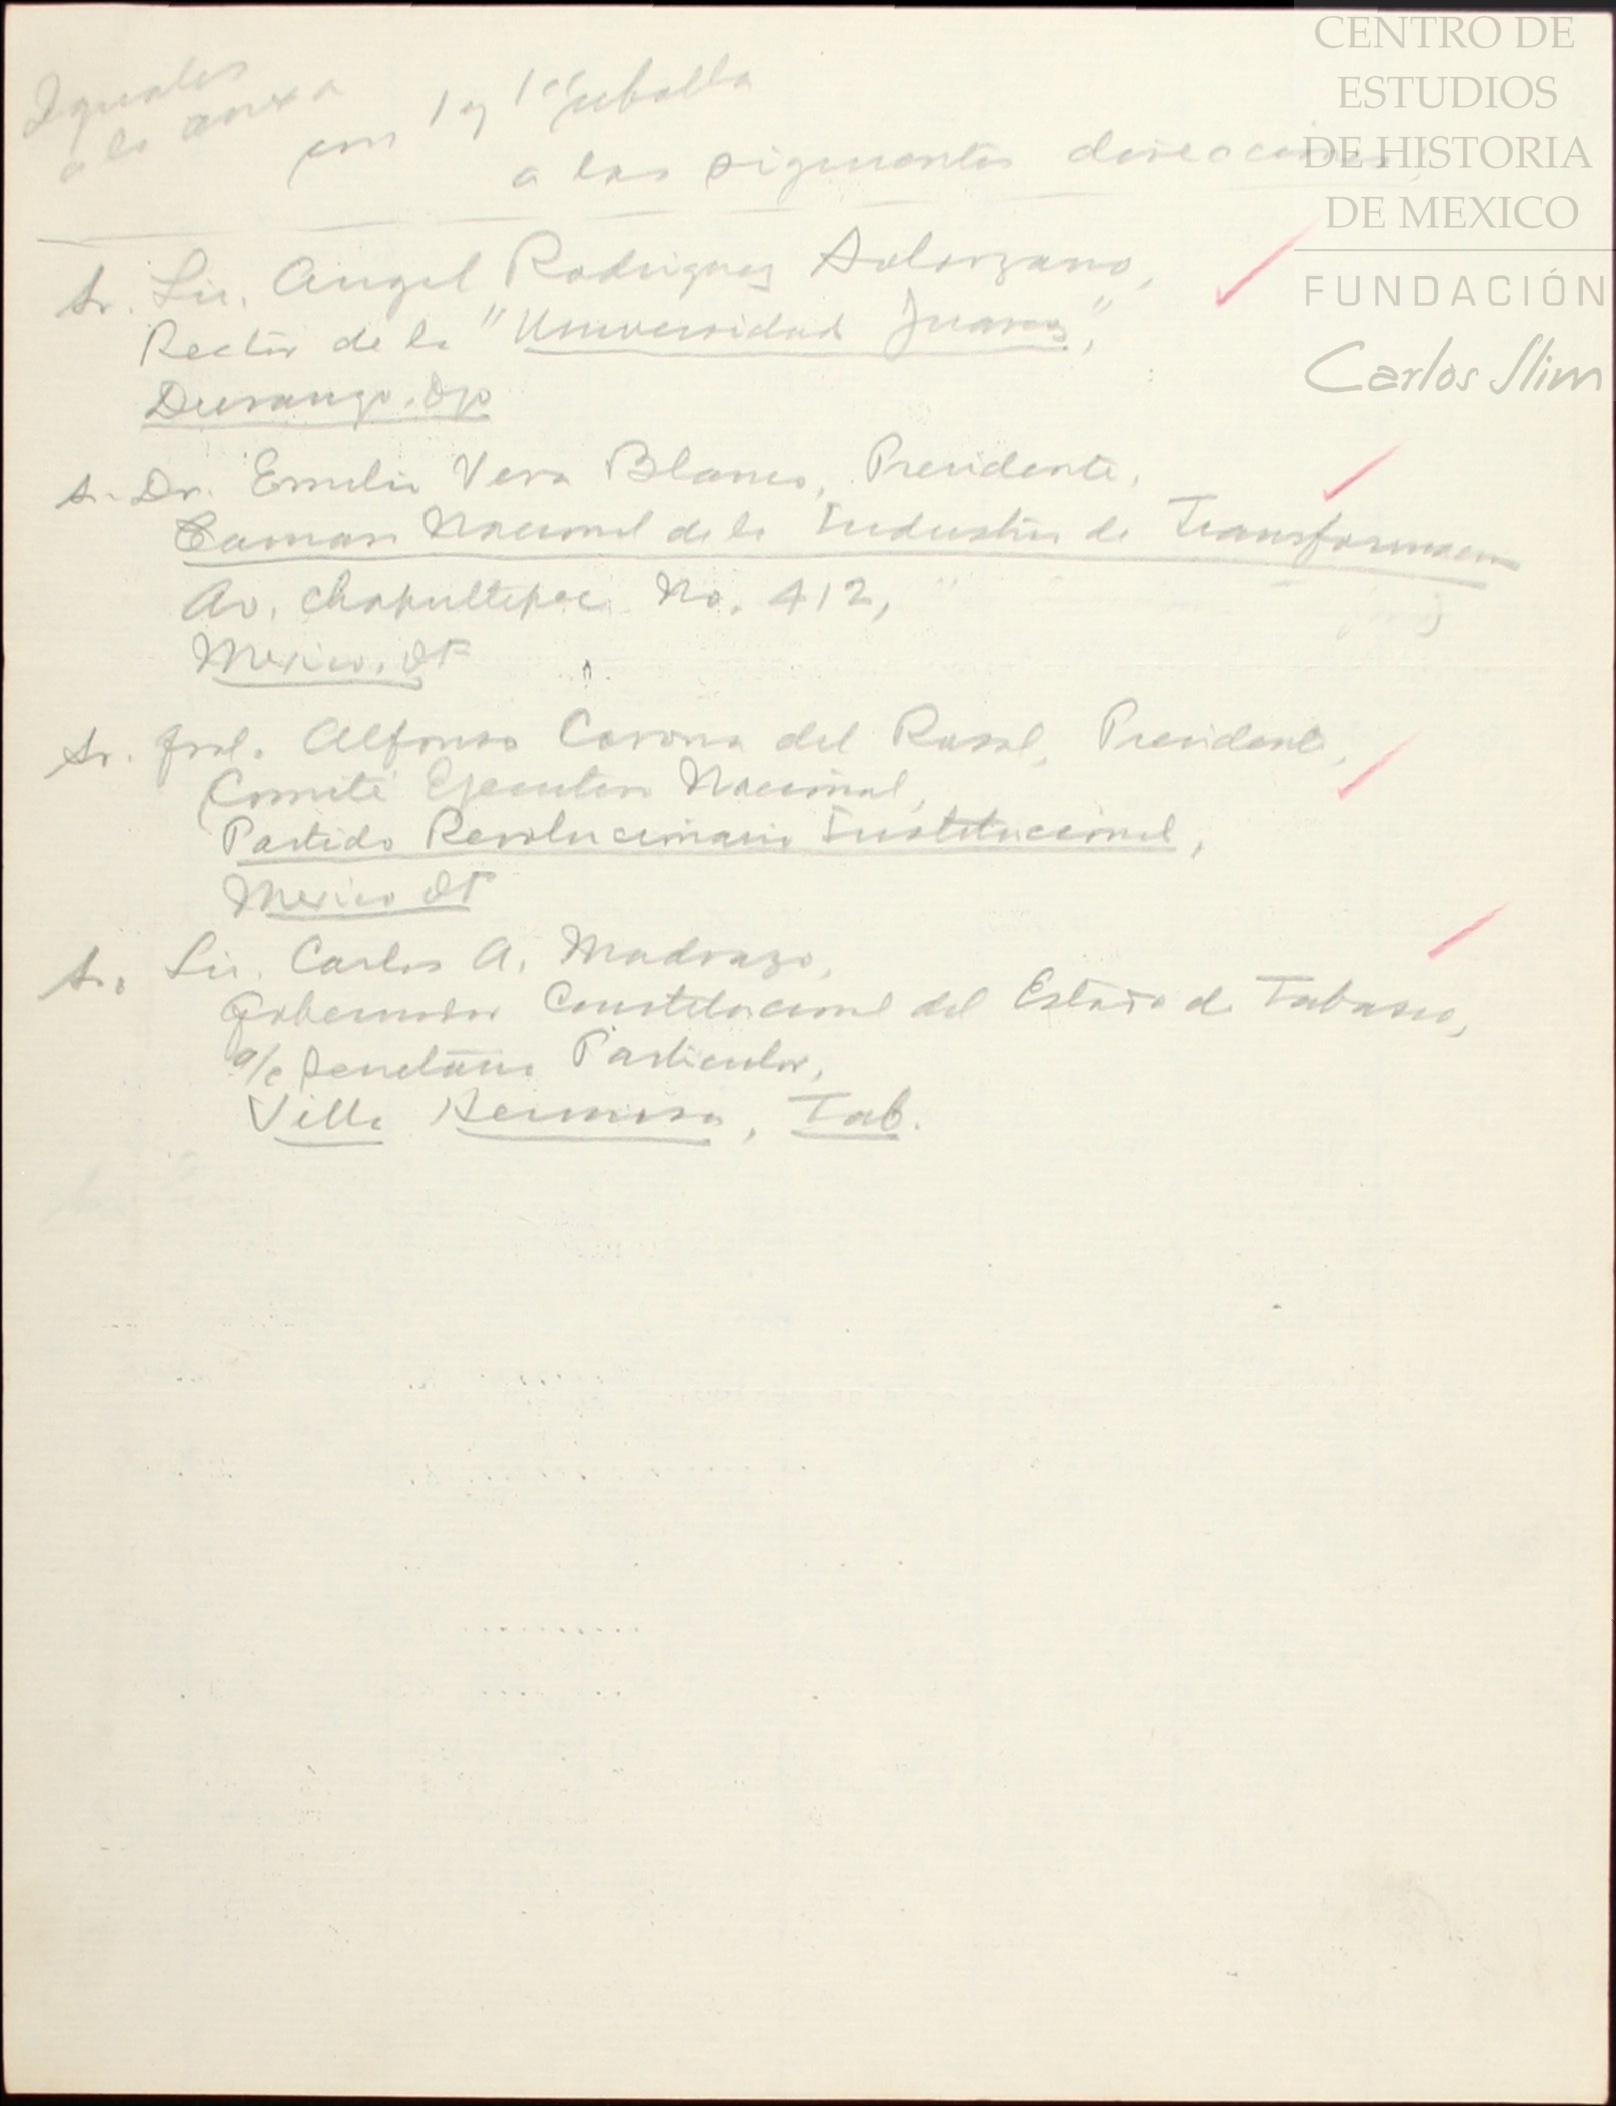 Iguales
a la anexa
con 1 y 1ca
a las siguientes direcciones
Sr. Lic. Angel Rodriguez Solorzano,
Rector de la "Universidad Juarez",
Durango, Dgo
Sr. Dr. Emilio Vera Blanco, Presidente,
Camara Nacional de la Industria de Transformacion
Av. Chapultepec No. 412,
Mexico, DF
Sr. Gral. Alfonso Corona del Rosal, Presidente,
Comité Ejecutivo Nacional,
Partido Revolucionario Institucional,
Mexico DF
Sr. Lic. Carlos A. Madrazo,
Gobernador Constitucional del Estado de Tabasco,
a/c Secretario Particular,
Villa Hermosa, Tab.
CENTRO DE
ESTUDIOS
DE HISTORIA
DE MEXICO
FUNDACIÓN
Carlos Slim